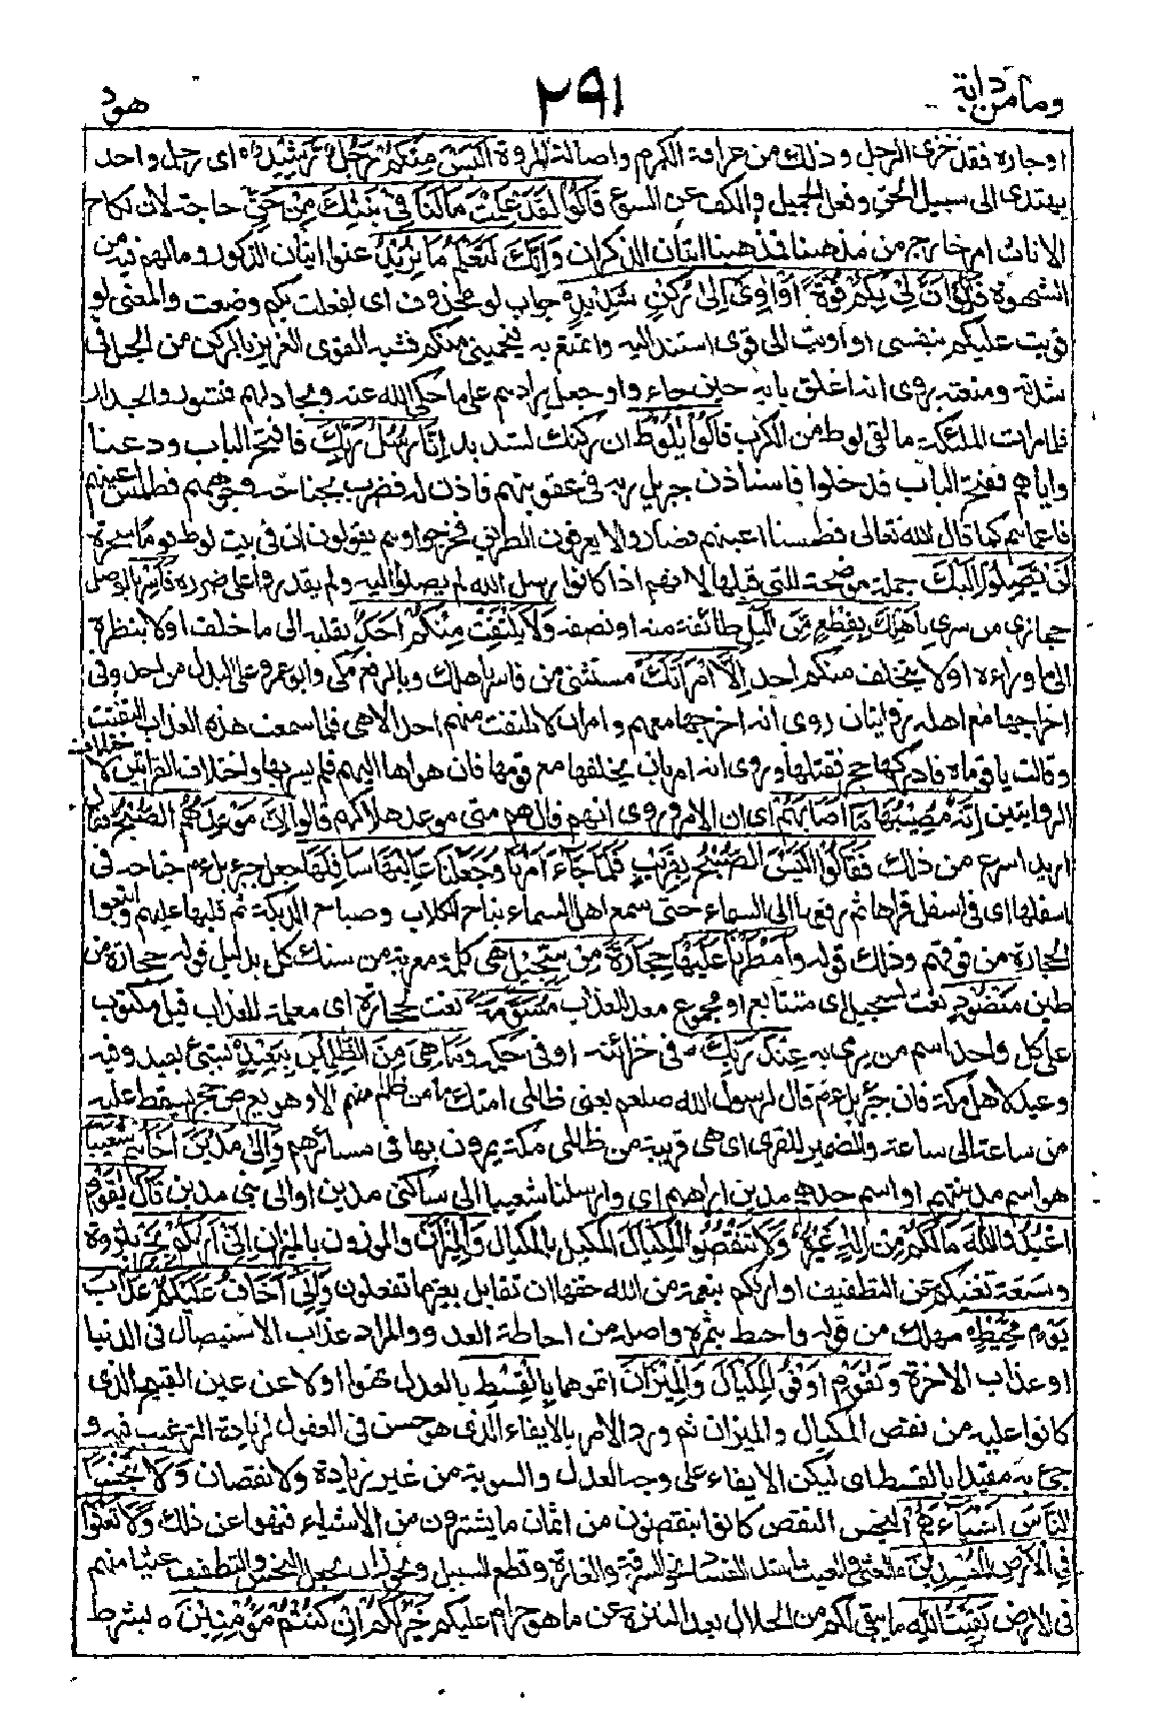 وما من دابة ٢٩١ هود
او جاره فقد خزى الرجل وذلك من عرافة الكرم واصالة المروة اليس منكم رجل رشيد ٥ اى رجل واحد
يهتدى الى سبيل الحق وفعل الجميل والكف عن السوء قالوا لقد علمت ما لنا فى بنتك من حق حاجة لان نكاح
الاناث امر خارج من مذهبنا فمذهبنا اتيان الذكران وانك لتعلم ما نريد عنوا اتيان الذكور وما لهم فيه من
الشهوة قال لو ان لى بكم قوة او اوى الى ركن شديد ٥ جواب لو محذوف اى لفعلت بكم وصنعت والمعنى لو
قويت عليكم بنفسى او اويت الى قوى استند اليه وامتنع به يحمينى منكم فشبه القوى العزيز بالركن من الجبل فى
شدته ومنعته روى انه اغلق بابه حين جاءوا وجعل يرادهم على ما حكى الله عنه ويجادلهم فتسوروا الجدار
فلما رات الملئكة ما لقى لوط من الكرب قالوا يلوط ان ركنك لشديد انا رسل ربك فافتح الباب ودعنا
واياهم ففتح الباب فدخلوا فاستاذن جبريل ربه فى عقوبتهم فاذن له فضرب بجناحه وجوههم فطمس اعينهم
فاعماهم كما قال الله تعالى فطمسنا اعينهم فصاروا لا يعرفون الطريق فخرجوا وهم يقولون ان فى بيت لوط قوما سحرة
لن يصلوا اليك جملة موضحة للتى قبلها لانهم اذا كانوا رسل الله لم يصلوا اليه ولم يقدروا على ضرره فاسر بالوصل
حجازى من سرى باهلك بقطع من اليل طائفة منه او نصفه ولا يلتفت منكم احد بقلبه الى ما خلف او لا ينظر
الى ما وراءه او لا يتخلف منكم احد الا امراتك مستثنى من فاسر باهلك وبالرفع مكى وابو عمرو على البدل من احد وفى
اخراجها مع اهله روايتان روى انه اخرجها معهم وامر ان لا يلتفت منهم احد الا هى فلما سمعت هذه العذاب التفتت
وقالت يا قوماه فادركها حجر فقتلها وروى انه امر بان يخلفها مع قومها فان هواها اليهم فلم يسر بها واختلاف القرائتين لاختلاف
الروايتين انه مصيبها ما اصابهم اى ان الامر وروى انهم قال لهم متى موعد هلاكهم قالوا ان موعدهم الصبح فقال
اريد اسرع من ذلك فقالوا اليس الصبح بقريب فلما جاء امرنا وجعلنا عاليها سافلها جعل جبريل عم جناحه فى
اسفلها اى فى اسفل قراها ثم رفعها الى السماء حتى سمع اهل السماء نباح الكلاب وصياح الديكة ثم قلبها عليهم واتبعوا
الحجارة من فوقهم وذلك قوله وامطرنا عليها حجارة من سجيل هى كلمة معربة من سنك كل بدليل قوله حجارة من
طين منضود نعت لسجيل اى متتابع او مجموع معد للعذاب مسومة نعت لحجارة اى معلمة للعذاب قيل مكتوب
على كل واحد اسم من يرمى به عند ربك فى خزائنه او فى حكمه وما هى من الظلمين ببعيد بشئ بعيد وفيه
وعيد لاهل مكة فان جبريل عم قال لرسول الله صلعم يعنى ظالمى امتك ما من ظلم منهم الا وهو بعرض حجر يسقط عليه
من ساعة الى ساعة والضمير للقرى اى هى قريبة من ظالمى مكة يمرون بها فى مسائرهم والى مدين اخاهم شعيبا
هو اسم مدينتهم او اسم جدهم مدين بن ابراهيم اى وارسلنا شعيبا الى ساكنى مدين او الى بنى مدين قال يقوم
اعبدوا الله ما لكم من اله غيره ولا تنقصوا المكيال المكيل بالمكيال والميزان والموزون بالميزان انى اراكم بخير بثروة
وسعة تغنيكم عن التطفيف او اراكم بنعمة من الله حقها ان تقابل بغير ما تفعلون وانى اخاف عليكم عذاب
يوم محيط ٥ مهلك من قوله واحيط بثمره واصله من احاطة العدو والمراد عذاب الاستيصال فى الدنيا
او عذاب الاخرة ويقوم اوفوا المكيال والميزان اتموهما بالقسط بالعدل نهوا اولا عن عين القبيح الذى
كانوا عليه من نقص المكيال والميزان ثم ورد الامر بالايفاء الذى هو حسن فى العقول لزيادة الترغيب فيه و
جئ به مقيدا بالقسط اى ليكن الايفاء على وجه العدل والسوية من غير زيادة ولا نقصان ولا تبخسوا
الناس اشياءهم البخس النقص كانوا ينقصون من اثمان ما يشترون من الاشياء فنهوا عن ذلك ولا تعثوا
فى الارض مفسدين العثى والعيث اشد الفساد نحو السرقة والغارة وقطع السبيل ويجوز ان يجعل البخس والتطفيف عثيا منهم
فى الارض بقيت الله ما يبقى لكم من الحلال بعد التنزه عن ما هو حرام عليكم خير لكم ان كنتم مؤمنين ٥ بشرط